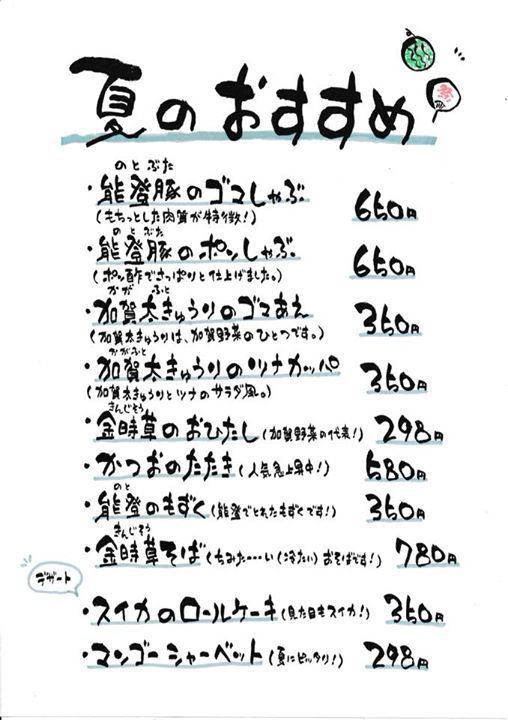 夏のおすすめ
祭
のとぶた
・能登豚のゴマしゃぶ 650円
(もちっとした肉質が特徴!)
のとぶた
・能登豚のポンしゃぶ 650円
(ポン酢でさっぱりと仕上げました。)
かがふと
・加賀太きゅうりのゴマあえ 350円
(加賀太きゅうりは、加賀野菜のひとつです。)
かがふと
・加賀太きゅうりのツナカッパ 350円
(加賀太きゅうりとツナのサラダ風。)
きんじそう
・金時草のおひたし(加賀野菜の代表!) 298円
・かつおのたたき(人気急上昇中!) 580円
のと
・能登のもずく(能登でとれたもずくです!) 350円
きんじそう
・金時草そば(ちみたーーーい(冷たい)おそばです!) 780円
デザート
・スイカのロールケーキ(見た目もスイカ!) 350円
・マンゴーシャーベット(夏にピッタリ!) 298円